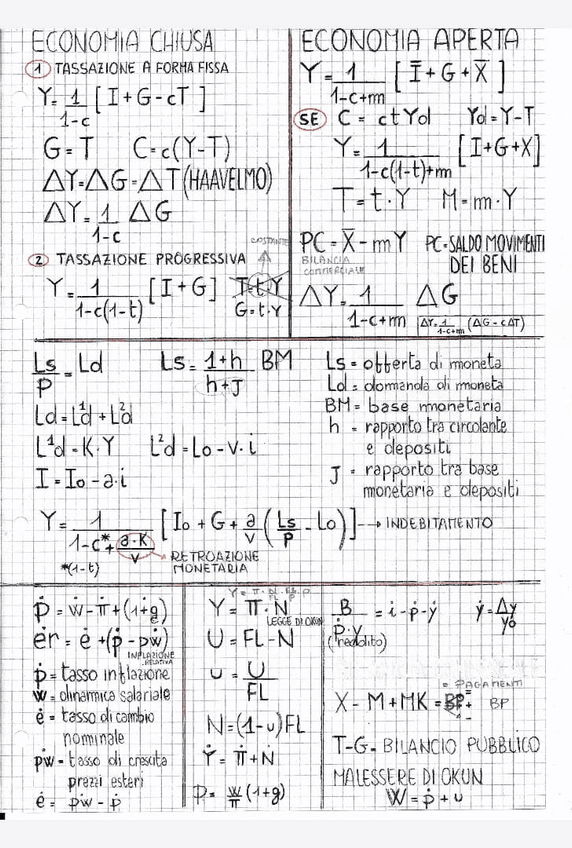 ECONOMIA CHIUSA
① TASSAZIONE A FORMA FISSA
Y = 1/(1-c) [ I + G - cT ]
G = T C = c(Y-T)
ΔY = ΔG = ΔT (HAAVELMO)
ΔY = 1/(1-c) ΔG
② TASSAZIONE PROGRESSIVA
COSTANTE
Y = 1/(1-c(1-t)) [I+G] T=t·Y
G = t·Y
ECONOMIA APERTA
Y = 1/(1-c+m) [ I̅ + G + X̅ ]
SE C = ctYd Yd = Y-T
Y = 1/(1-c(1-t)+m) [I+G+X]
T = t·Y M = m·Y
PC = X̅ - mY PC = SALDO MOVIMENTI
BILANCIA DEI BENI
COMMERCIALE
ΔY = 1/(1-c+m) ΔG
ΔY = 1/(1-c+m) (ΔG - cΔT)
Ls/P = Ld Ls = (1+h)/(h+J) BM
Ld = L¹d + L²d
L¹d = K·Y L²d = Lo - v·i
I = Io - a·i
Ls = offerta di moneta
Ld = domanda di moneta
BM = base monetaria
h = rapporto tra circolante
e depositi
J = rapporto tra base
monetaria e depositi
Y = 1/(1-c* + a·K/v) [ Io + G + a/v ( Ls/P - Lo ) ] → INDEBITAMENTO
*(1-t)
RETROAZIONE
MONETARIA
ṗ = ẇ - π̇ + (1+g)
ėr = ė + (ṗ - pẇ)
INFLAZIONE
RELATIVA
ṗ = tasso inflazione
ẇ = dinamica salariale
ė = tasso di cambio
nominale
pẇ = tasso di crescita
prezzi esteri
ė = pẇ - ṗ
Y = π · N
LEGGE DI OKUN
U = FL - N
u = U/FL
N = (1-u) FL
Ẏ = π̇ + Ṅ
p = w/π (1+g)
B/(p·y) = i - ṗ - ẏ ẏ = Δy/yo
(reddito)
= PAGAMENTI
X - M + MK = BP = BP
T-G = BILANCIO PUBBLICO
MALESSERE DI OKUN
W = ṗ + u